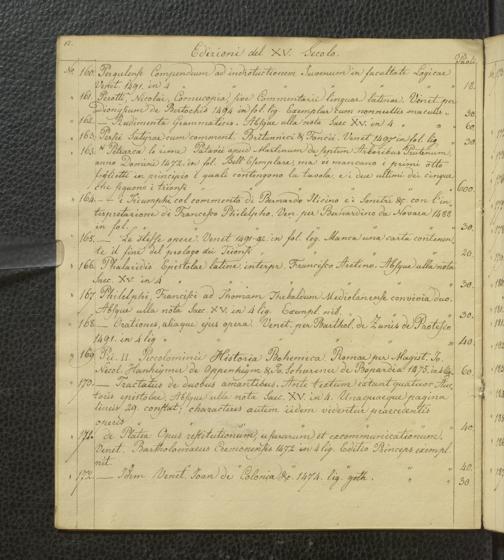 12.
Edizioni del XV. Secolo.
Paoli
No. 160. Pergulensis Compendum ad introductionem Juvenum in facultate Logicae
Venet. 1491. in 4 " " " " " 18.
" 161. Perotti, Nicolai, Cornucopia, sive Commentarii linguae latinae. Venet. per
Dionysium de Bertochis 1494 in fol. lig. Exemplar cum nonnullis maculis. 30.
" 162. — Rudimenta Grammatices. Absque ulla nota Saec. XV. in 4 " 60
" 163. Persii Satyrae cum comment. Britannici & Fontii. Venet. 1495 in fol. lig. 30.
" 163.* Petrarca le rime Patavii apud Martinum de septem Arboribus Prutenum
anno Domini 1472. in fol. Bell' Esemplare, ma vi mancano i primi otto
foglietti in principio i quali contengono la tavola e i due ultimi dei cinque
che seguono i trionfi " " " " 600.
" 164. — i Triumphi col commento di Bernardo Ilicino e i Sonetti &c. con l'in-
terpretazione di Francesco Philelpho. Ven. per Bernardino da Novara 1488
in fol. " " " " 30.
" 165. — Le stesse opere. Venet. 1491-92. in fol. lig. Manca una carta contenen-
te il fine del prologo dei Trionfi " " 20.
" 166. Phalaridis Epistolae latine interpr. Francisco Aretino. Absque ulla nota
Saec. XV. in 4 " " " " 30.
" 167. Philelphi, Francisci ad Thomam Thebaldum Mediolanensem convivia duo.
Absque ulla nota Saec. XV. in 4 lig. Exempl. nit. " " 30.
" 168. — Orationes, aliaque ejus opera. Venet. per Barthol. de Zanis de Portesio
1491. in 4 lig " " " " 40.
" 169. Pii. II. Piccolominii Historia Bohemica. Romae per Magist. Jo.
Nicol. Hanheymer de Oppenheym & Jo. Schurener de Bopardia 1475. in 4 lig. 60
" 170. — Tractatus de duobus amantibus. Ante textum extant quatuor Auc-
toris epistolae. Absque ulla nota Saec. XV. in 4. Unaquaeque pagina
lineis 29. constat; characteres autem iidem videntur praecedentis
operis " " " " 40.
" 171. de Platea Opus restitutionum, usurarum et excommunicationum.
Venet. Bartholomaeus Cremonensis 1472 in 4 lig. Editio Princeps exempl.
nit. " " " " 40.
" 172. — Idem Venet. Joan de Colonia &c. 1474. lig. goth. " " 30.